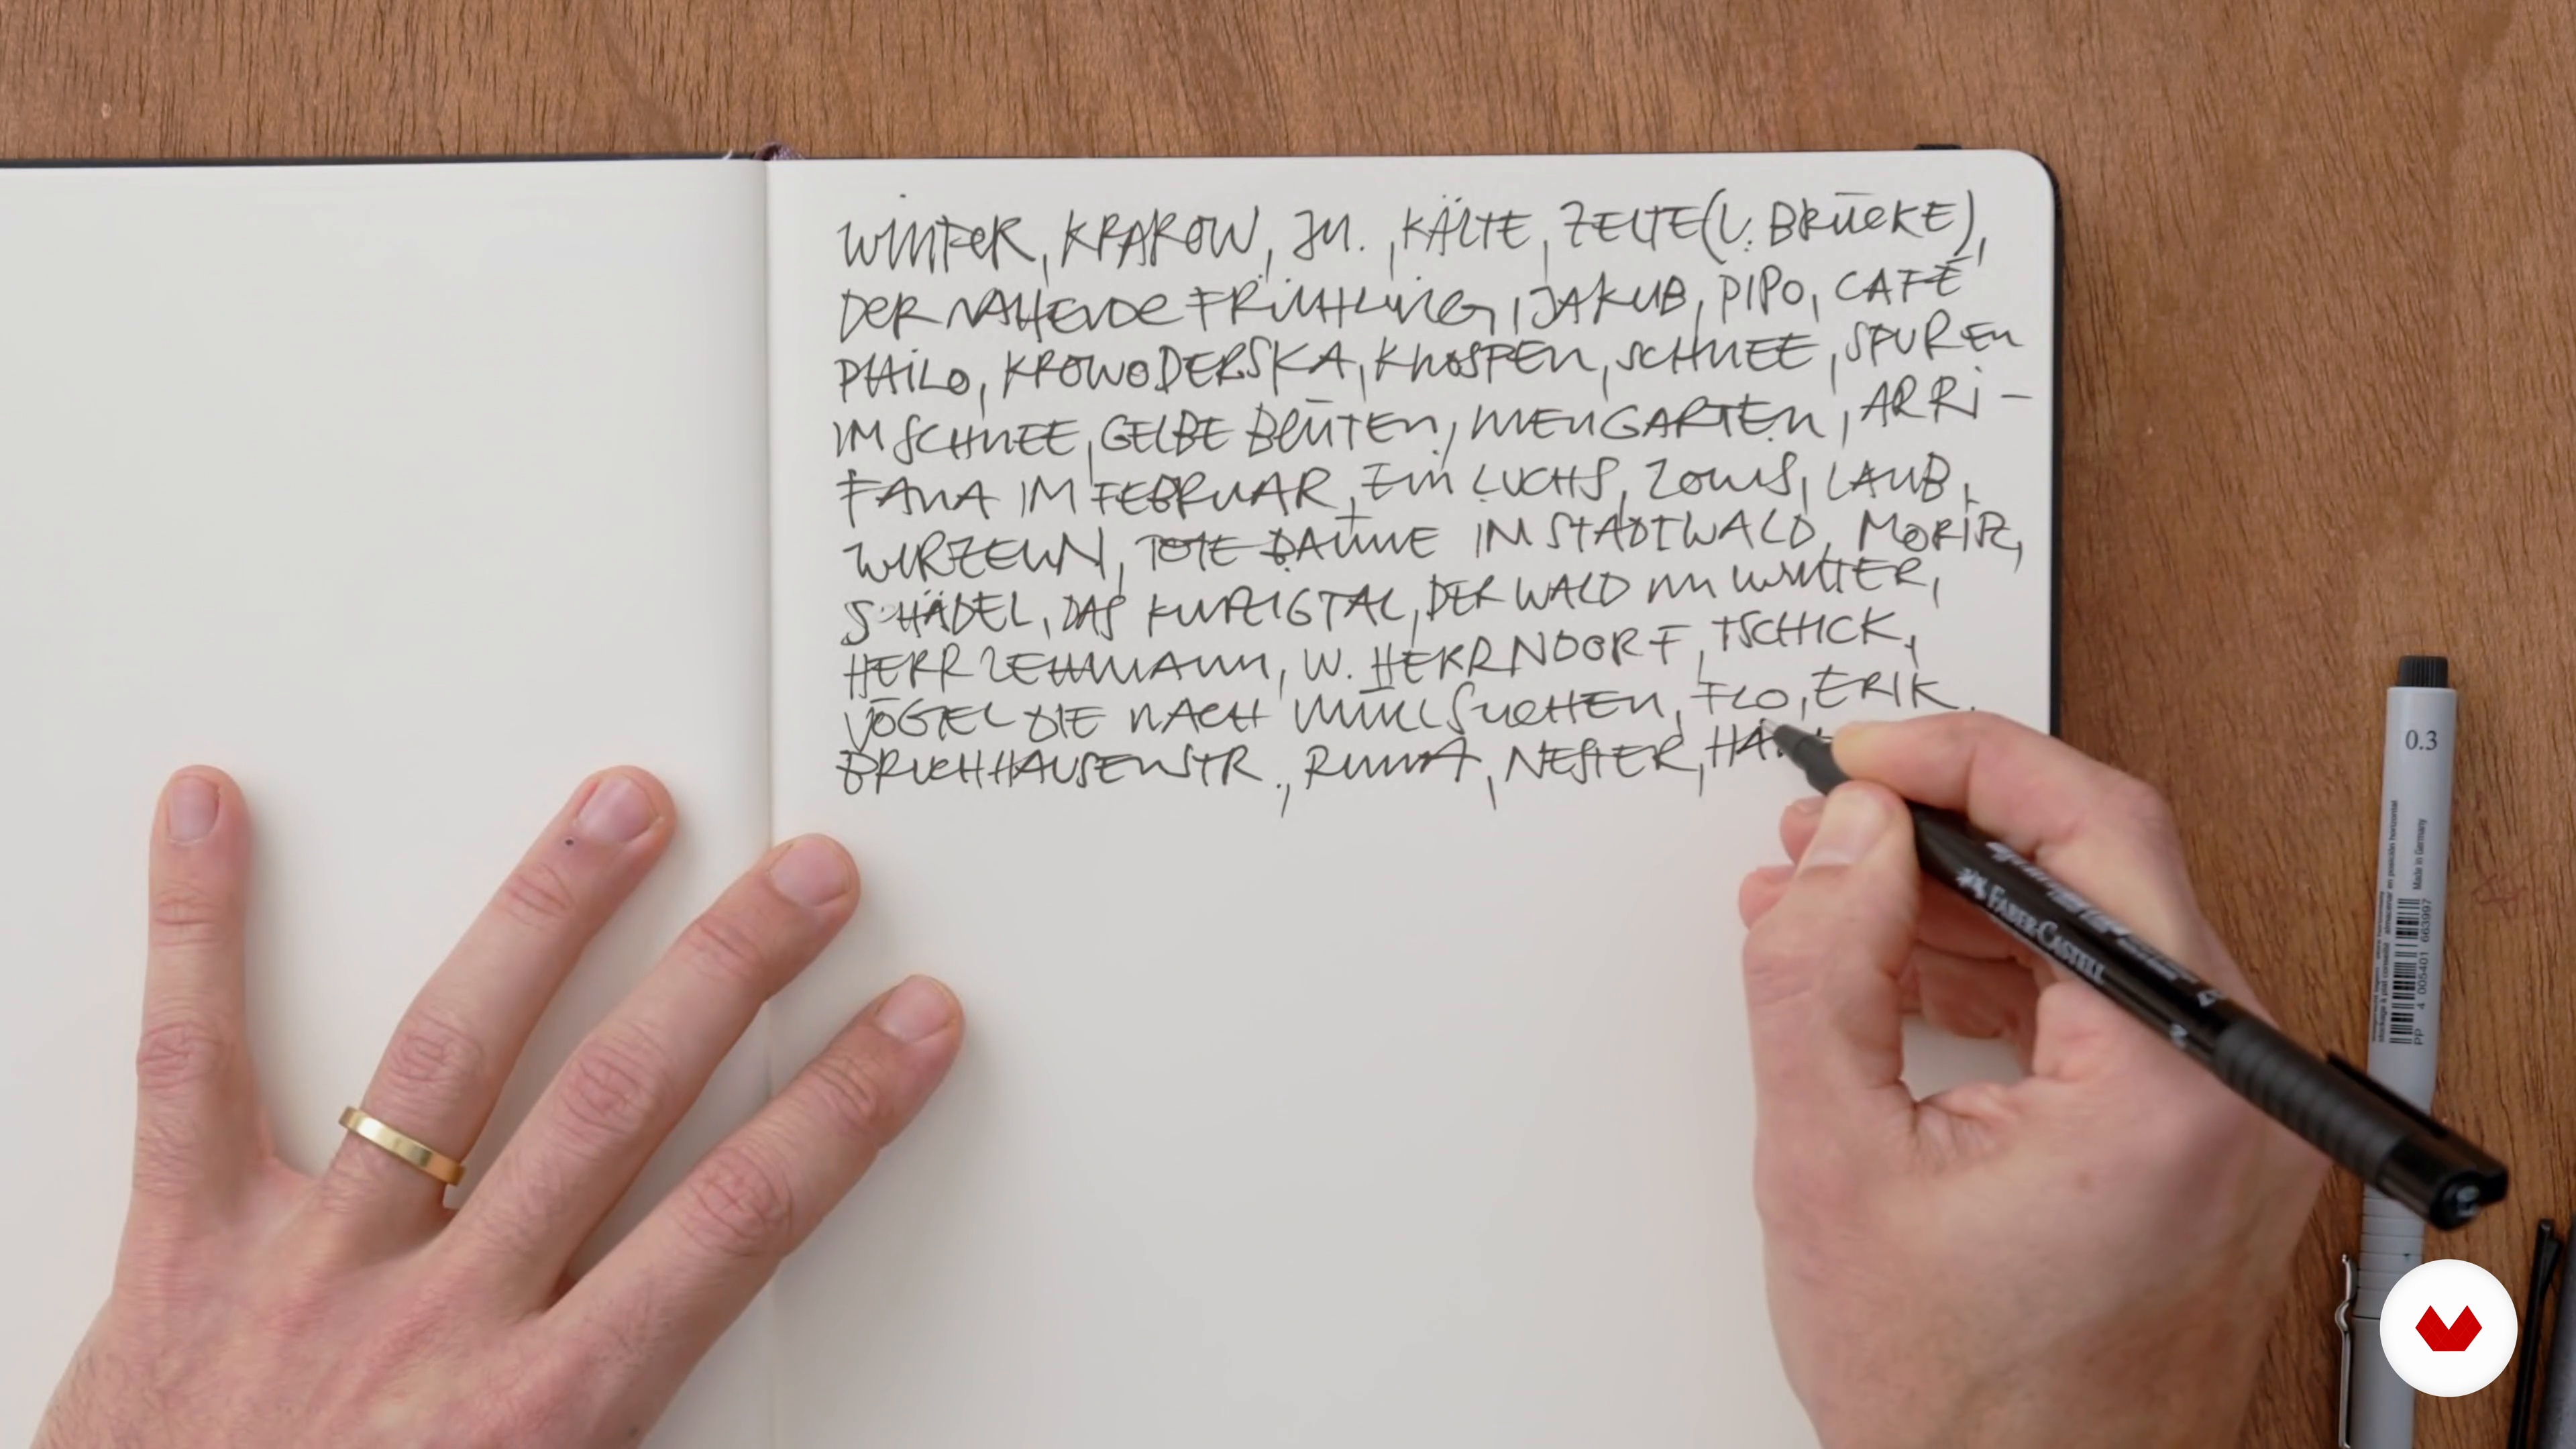 WINTER, KRAKOW, JN., KÄLTE, ZELTE (U. BRÜCKE),
DER NAHENDE FRÜHLING, JAKUB, PIPO, CAFÉ
PHILO, KROWODERSKA, KNOSPEN, SCHNEE, SPUREN
IM SCHNEE, GELBE BLÜTEN, INNENGARTEN, ARRI-
FANA IM FEBRUAR, EIN LUCHS, LOUIS, LAUB,
WURZELN, TOTE BÄUME IM STADTWALD, MORITZ,
SCHÄDEL, DAS KINZIGTAL, DER WALD IM WINTER,
HERR LEHMANN, W. HERRNDORF, TSCHICK,
VÖGEL DIE NACH MÜLL SUCHEN, FLO, ERIK,
BRUCHHAUSENSTR., RUNA, NESTER,
FABER-CASTELL
0.3
Made in Germany
PP 4 005401 663997